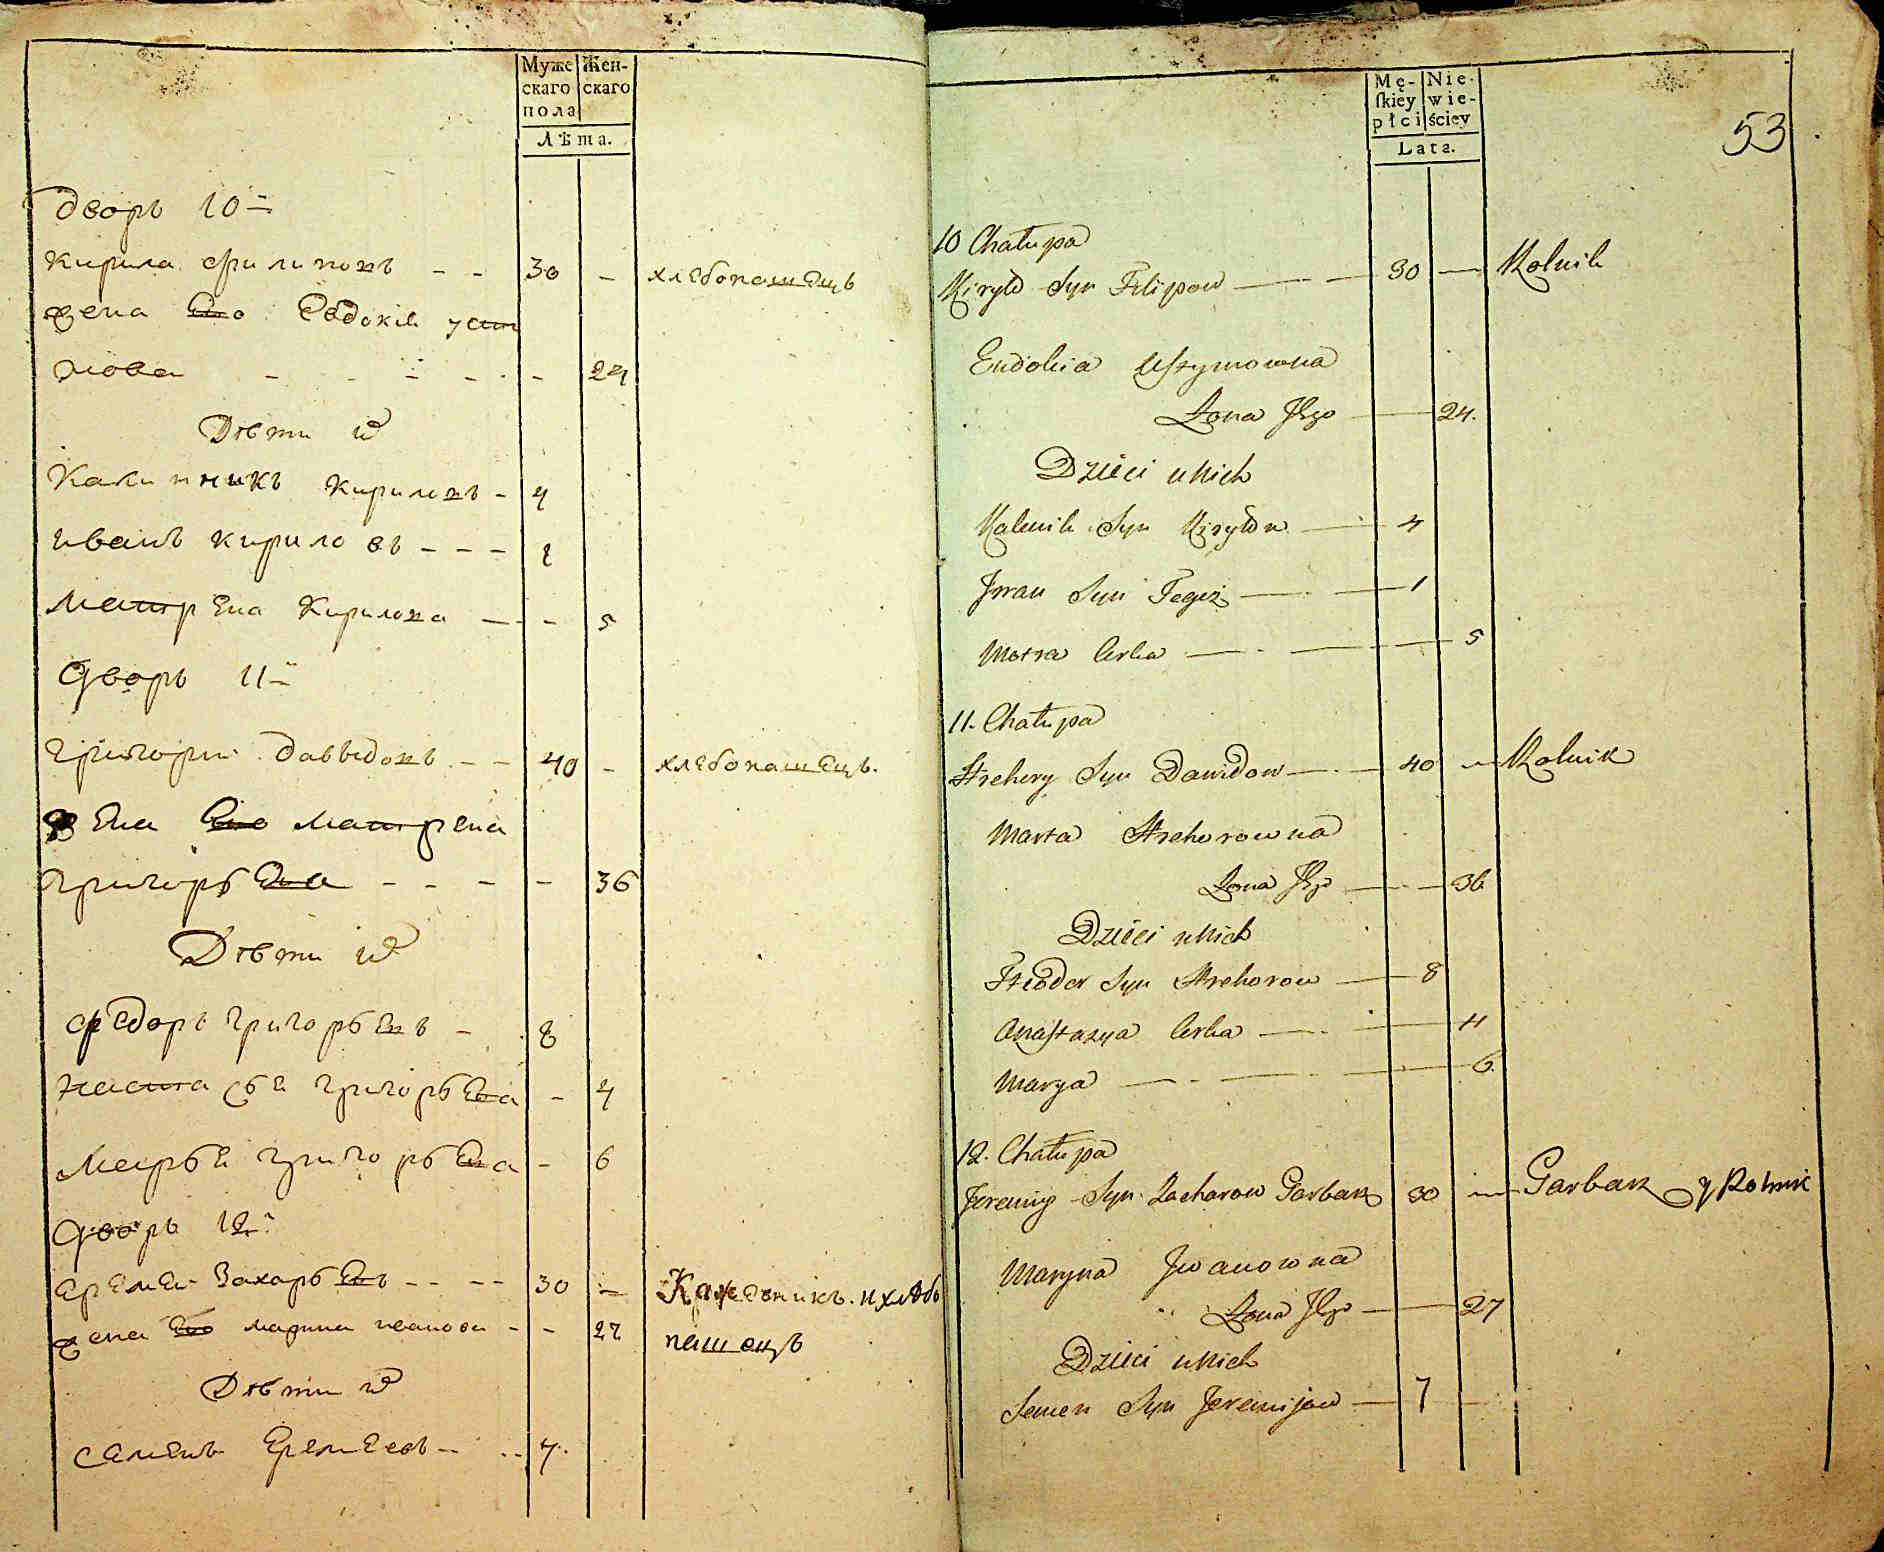 Муже
скаго
пола
Жен-
скаго
Лѣта.
дворъ 10й
кирила филиповъ - - 30 - хлебопашецъ
жена Его Евдокия усти
мова - - - - - 24
Дѣти их
Калинникъ кириловъ - 4
иванъ кириловъ - - - 1
Матрена Кирилова - - 5
дворъ 11й
григорий давыдовъ - - 40 - хлебопашецъ.
жена Его матрена
григорьева - - - - 36
Дѣти их
федоръ григорьевъ - 8
настасья григорьева - 4
Марья григорьева - 6
дворъ 12й
еремей Захарьевъ - - - - 30 - Кожевникъ и хлѣбо
жена его марина иванова - - 27 пашецъ
Дѣти их
семенъ Еремеевъ - - 7.
Mę-
skiey
płci
Nie-
wie-
ściey
Lata.
53
10 Chałupa
Kiryło Syn Filipow — 30 — Rolnik
Eudokia Ustymowna
Żona Jego — 24.
Dzieci u Nich
Kalenik Syn Kiryłow — 4
Jwan Syn Tegoż — 1
Motra Corka — 5
11. Chałupa
Hrehory Syn Dawidow — 40 — Rolnik
Marta Hrehorowna
Żona Jego — 36
Dzieci u Nich
Fteodor Syn Hrehorow — 8
Anastazya Corka — 4
Marya — 6
12. Chałupa
Jeremiy Syn Zacharow Garbarz 30 — Garbarz y Rolnik
Maryna Jwanowna
Żona Jego — 27
Dzieci u Nich
Semen Syn Jeremijow — 7